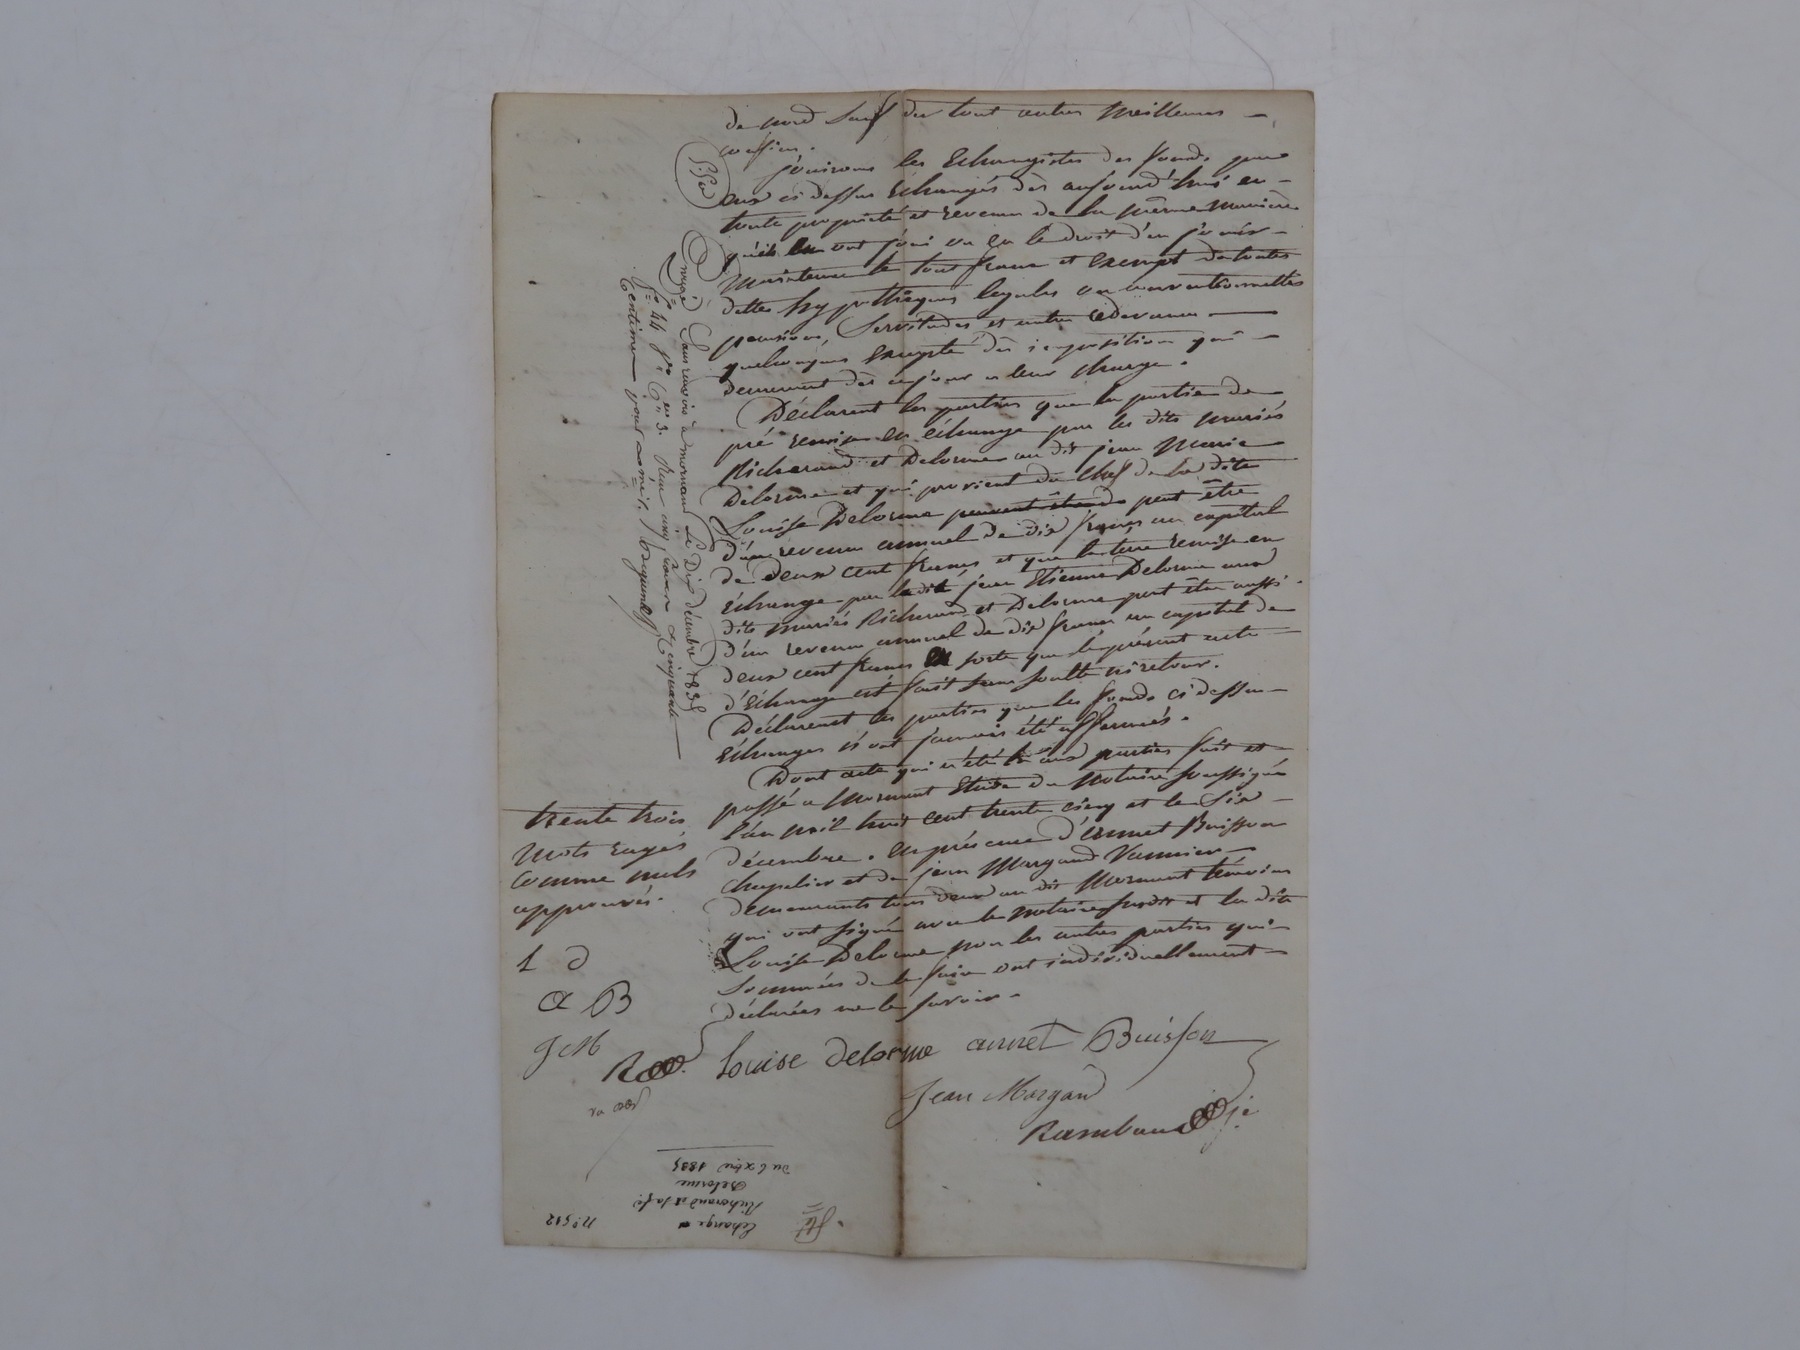 de nord sauf du tout autres meilleures
confins.
jouirons les Echangistes des fonds par
eux ci dessus Echangés dès aujourd'hui en
toute propriété et revenu de la même manière
qu'ils en ont joui ou eu le droit d'en jouir
Maintenue le tout franc et exempt de toutes
dettes hypothèques legales ou conventionnelles
pensions, Servitudes et autres redevances
quelconques excepté des impositions qui
demeurent dès ce jour a leur charge.
Déclarent les parties que la partie de
pré remise en échange par les dits mariés
Richerand et Delorme au dit jean Marie
Delorme et qui provient du chef de la dite
Louise Delorme peut être
d'un revenu annuel de dix francs au capital
de deux cent francs et que la terre remise en
échange par le dit jean Etienne Delorme aux
dits mariés Richerand et Delorme peut être aussi
d'un revenu annuel de dix francs au capital de
deux cent francs en sorte que le présent acte
d'Echange est fait sans soulte ni retour.
Déclarent les parties que les fonds ci dessus
Echangés n'ont jamais été affermés.
Dont acte qui a été lu aux parties fait et
passé a Mornant Etude du Notaire soussigné
l'an mil huit cent trente cinq et le Six
décembre. en présence d'annet Buisson
chapelier et de jean Margand Vannier
demeurants tous deux au dit Mornant témoins
qui ont signé avec le notaire susdit et la dite
Louise Delorme non les autres parties qui
sommées de le faire ont individuellement
déclarées ne le savoir.
Louise delorme annet Buisson
Jean Margand
Rambaud
Enregé Sans renvoi à mornant Le Dix décembre 1835
f° 44 r° Cen 3. Reçu cinq francs cinquante
Centimes
trente trois
mots rayés
comme nuls
approuvés.
L D
a B
J M
R
N° 512
Echange
Richerand et sa fe
Delorme
du 6 xbre 1835